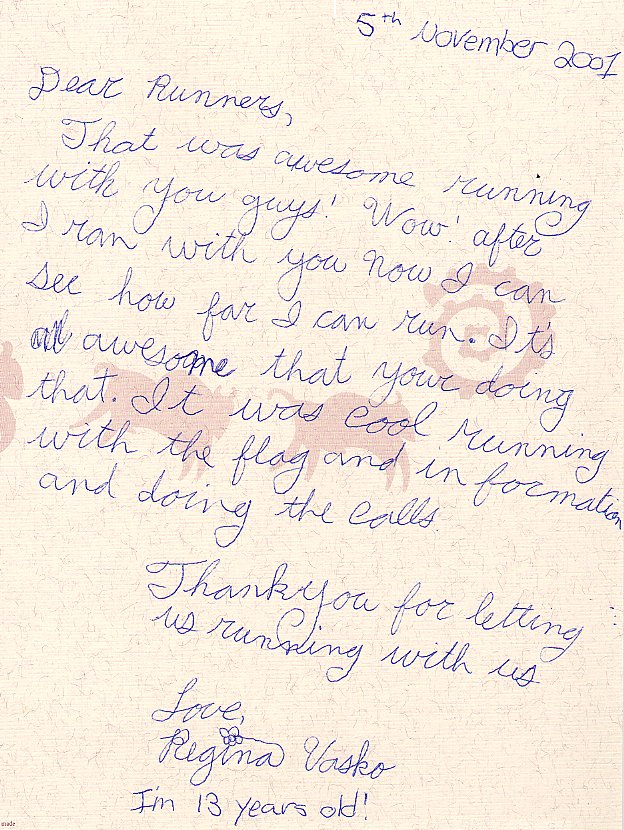 5th November 2001
Dear Runners,
That was awesome running
with you guys! Wow! after
I ran with you now I can
see how far I can run. It's
awesome that your doing
that. It was cool running
with the flag and in formation
and doing the calls.
Thankyou for letting
us running with us
Love,
Regina Vasko
I'm 13 years old!
made